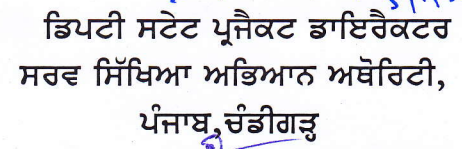 ਡਿਪਟੀ ਸਟੇਟ ਪ੍ਰਜੈਕਟ ਡਾਇਰੈਕਟਰ
ਸਰਵ ਸਿੱਖਿਆ ਅਭਿਆਨ ਅਥੋਰਿਟੀ,
ਪੰਜਾਬ,ਚੰਡੀਗੜ੍ਹ